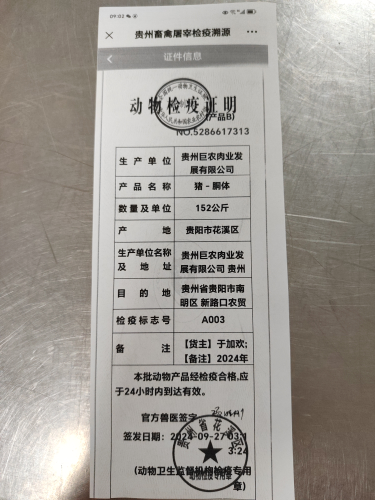 09:02
贵州畜禽屠宰检疫溯源
证件信息
动物检疫证明
(产品B)
NO.5286617313
生产单位 贵州巨农肉业发
展有限公司
产品名称 猪-胴体
数量及单位 152公斤
产地 贵阳市花溪区
生产单位名称 贵州巨农肉业发
及地址 展有限公司 贵州
目的地 贵州省贵阳市南
明区 新路口农贸
检疫标志号 A003
备注 【货主】于加欢;
【备注】2024年
本批动物产品经检疫合格,应
于24小时内到达有效。
官方兽医签字:
签发日期: 2024-09-27 03:1
3:24
(动物卫生监督机构检疫专用
章)
贵州省花溪区
动物检疫专用章